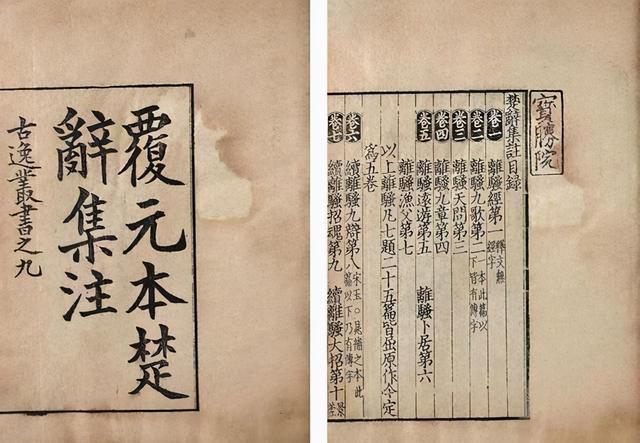 覆元本楚
辭集注
古逸叢書之九
寶勝院
楚辭集註目録
卷一 離騷經第一 釋文無經字
卷二 離騷九歌第二 一本此篇以下皆有傳字
卷三 離騷天問第三
卷四 離騷九章第四
卷五 離騷遠遊第五 離騷卜居第六
離騷漁父第七
以上離騷凡七題二十五篇皆屈原作今定
為五卷
卷六 續離騷九辯第八 宋玉○晁補之本此篇以下乃有傳字
續離騷招魂第九 續離騷大招第十 景